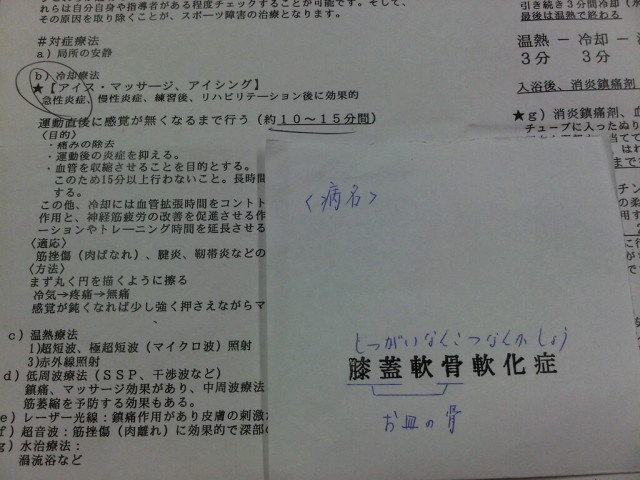 れらは自分自身や指導者がある程度チェックすることが可能です。そして、
その原因を取り除くことが、スポーツ障害の治療となります。
#対症療法
a)局所の安静
b)冷却療法
★【アイス・マッサージ、アイシング】
急性炎症、慢性炎症、練習後、リハビリテーション後に効果的
運動直後に感覚が無くなるまで行う(約10~15分間)
〈目的〉
・痛みの除去
・運動後の炎症を抑える。
・血管を収縮させることを目的とする。
このため15分以上行わないこと。長時間
する。
この他、冷却には血管拡張時間をコントト
作用と、神経筋疲労の改善を促進させる作
ーションやトレーニング時間を延長させる
〈適応〉
筋挫傷(肉ばなれ)、腱炎、靭帯炎などの
〈方法〉
まず丸く円を描くように擦る
冷気→疼痛→無痛
感覚が鈍くなれば少し強く押さえながらマ
c)温熱療法
1)超短波、極超短波(マイクロ波)照射
3)赤外線照射
d)低周波療法(SSP、干渉波など)
鎮痛、マッサージ効果があり、中周波療法
筋萎縮を予防する効果もある。
e)レーザー光線:鎮痛作用があり皮膚の刺激
f)超音波:筋挫傷(肉離れ)に効果的で深部の
g)水治療法:
渦流浴など
引き続き3分間冷却(
最後は温熱で終わる
温熱-冷却-
3分 3分
入浴後、消炎鎮痛剤
★g)消炎鎮痛剤、
チューブに入ったぬり
〈病名〉
しつがいなんこつなんかしょう
膝蓋軟骨軟化症
お皿の骨